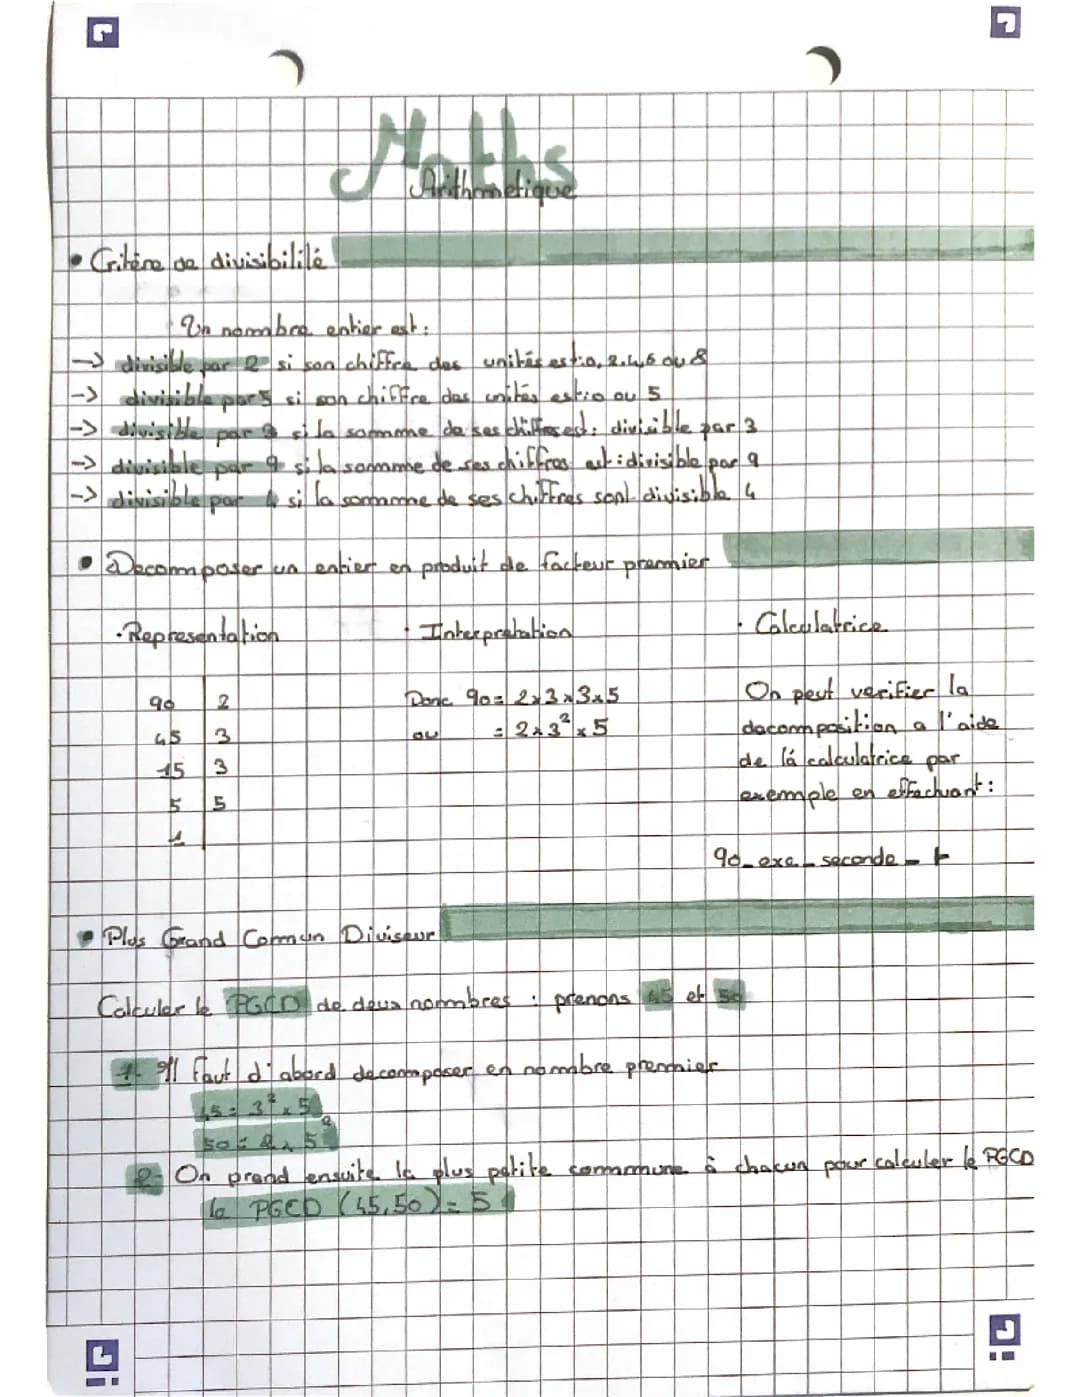 Maths
Arithmetique
• Critère de divisibilité
Un nombre entier est :
-> divisible par 2 si son chiffre des unités est : 0, 2.4,6 ou 8
-> divisible par 5 si son chiffre des unités est : 0 ou 5
-> divisible par 3 si la somme de ses chiffres est : divisible par 3
-> divisible par 9 si la somme de ses chiffres est : divisible par 9
-> divisible par 4 si la somme de ses chiffres sont divisible 4
• Decomposer un entier en produit de facteur premier
· Representation · Interpretation · Calculatrice
90 | 2
45 | 3
15 | 3
5 | 5
1 |
Donc 90 = 2x3x3x5
ou = 2x3² x 5
On peut verifier la
decomposition a l'aide
de là calculatrice par
exemple en effectuant :
90_exe_seconde_
• Plus Grand Comun Diviseur
Calculer le PGCD de deux nombres : prenons 45 et 50
1- Il faut d'abord decomposer en nombre premier
45 = 3² x 5
50 = 2 x 5²
2- On prend ensuite la plus petite commune à chacun pour calculer le PGCD
le PGCD (45,50) = 5